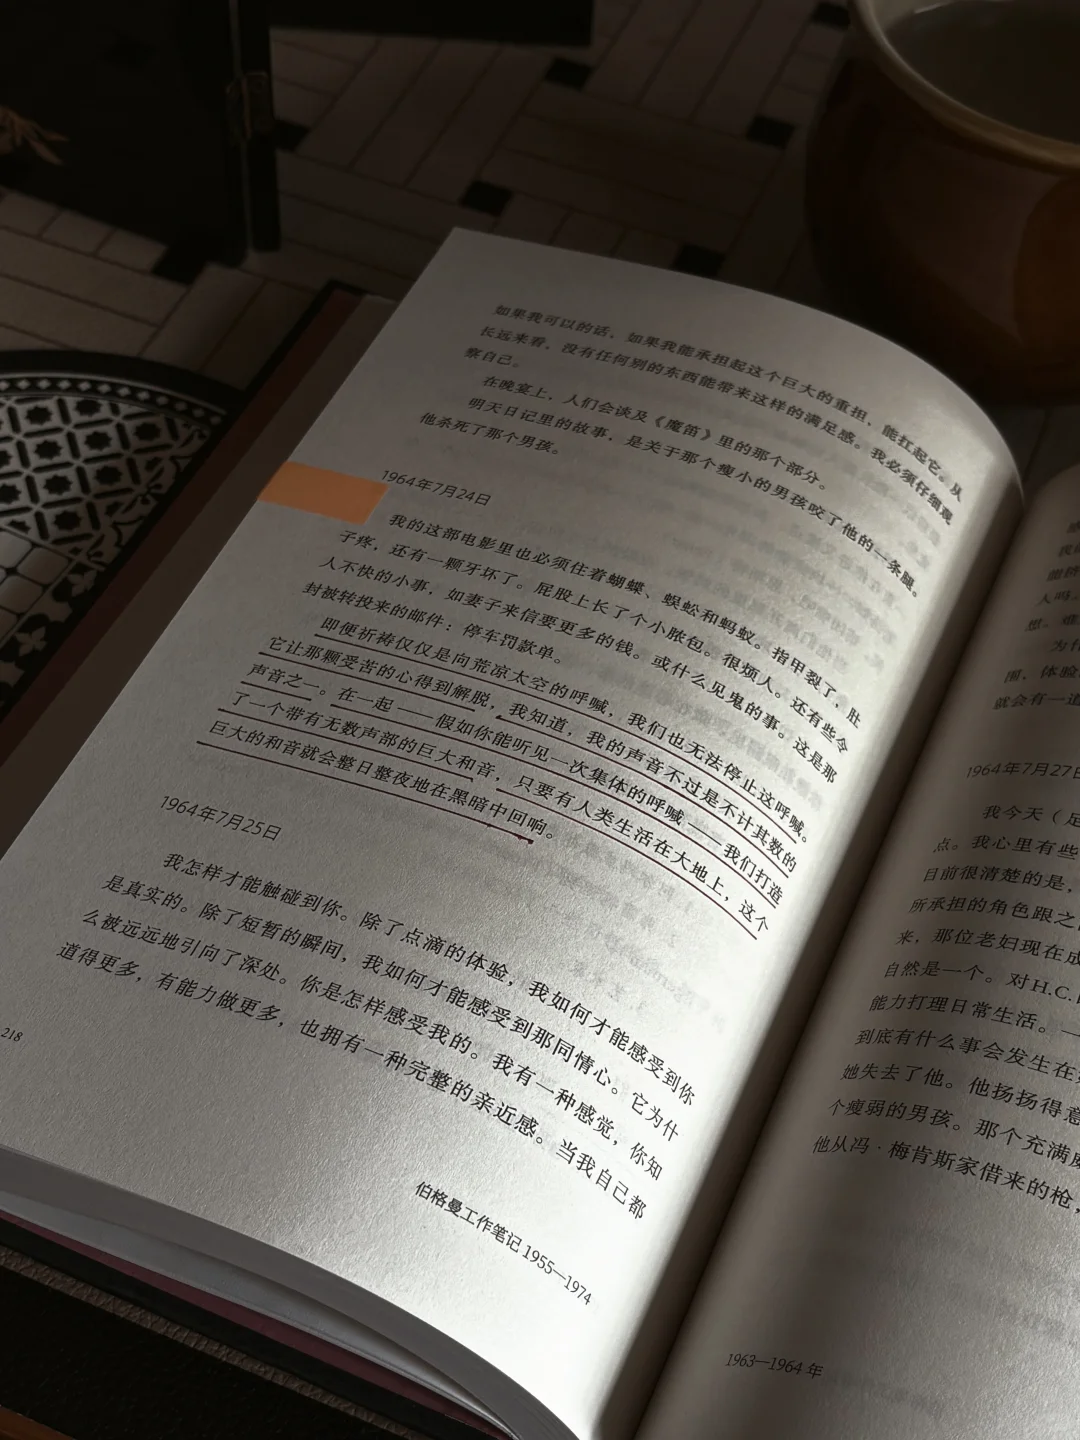 如果我可以的话，如果我能承担起这个巨大的重担，能扛起它。从
长远来看，没有任何别的东西能带来这样的满足感。我必须仔细观
察自己。
在晚宴上，人们会谈及《魔笛》里的那个部分。
明天日记里的故事，是关于那个瘦小的男孩咬了他的一条腿。
他杀死了那个男孩。
1964年7月24日
我的这部电影里也必须住着蝴蝶、蜈蚣和蚂蚁。指甲裂了，肚
子疼，还有一颗牙坏了。屁股上长了个小脓包。很烦人。还有些令
人不快的小事，如妻子来信要更多的钱。或什么见鬼的事。这是那
封被转投来的邮件：停车罚款单。
即便祈祷仅仅是向荒凉太空的呼喊，我们也无法停止这呼喊。
它让那颗受苦的心得到解脱，我知道，我的声音不过是不计其数的
声音之一。在一起——假如你能听见一次集体的呼喊——我们打造
了一个带有无数声部的巨大和音，只要有人类生活在大地上，这个
巨大的和音就会整日整夜地在黑暗中回响。
1964年7月25日
我怎样才能触碰到你。除了点滴的体验，我如何才能感受到你
是真实的。除了短暂的瞬间，我如何才能感受到那同情心。它为什
么被远远地引向了深处。你是怎样感受我的。我有一种感觉，你知
道得更多，有能力做更多，也拥有一种完整的亲近感。当我自己都
218
伯格曼工作笔记 1955—1974
人吗
想，难
为什
围，体验
就会有一道
1964年7月27日
我今天（足
点。我心里有些
目前很清楚的是，
所承担的角色跟之
来，那位老妇现在成
自然是一个。对H.C.
能力打理日常生活。—
到底有什么事会发生在
她失去了他。他扬扬得意
个瘦弱的男孩。那个充满
他从冯·梅肯斯家借来的枪，
1963—1964 年